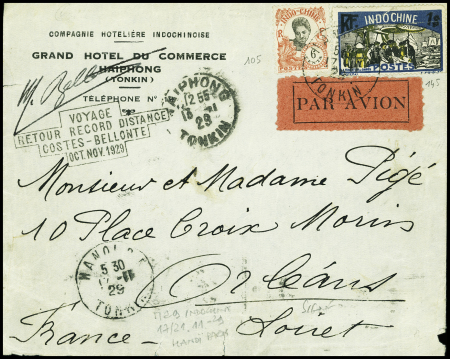 COMPAGNIE HOTELIÈRE INDOCHINOISE
GRAND HOTEL DU COMMERCE
HAIPHONG
(TONKIN)
TÉLÉPHONE N°
105
INDO-CHINE
RF INDOCHINE
POSTES
TONKIN
145
PAR AVION
VOYAGE
RETOUR RECORD DISTANCE
COSTES-BELLONTE
OCT. NOV. 1929
HAIPHONG
29
TONKIN
Monsieur et Madame Pigé
10 Place Croix Morin
Orléans
France Loiret
HANOI
5 30
29
TONKIN